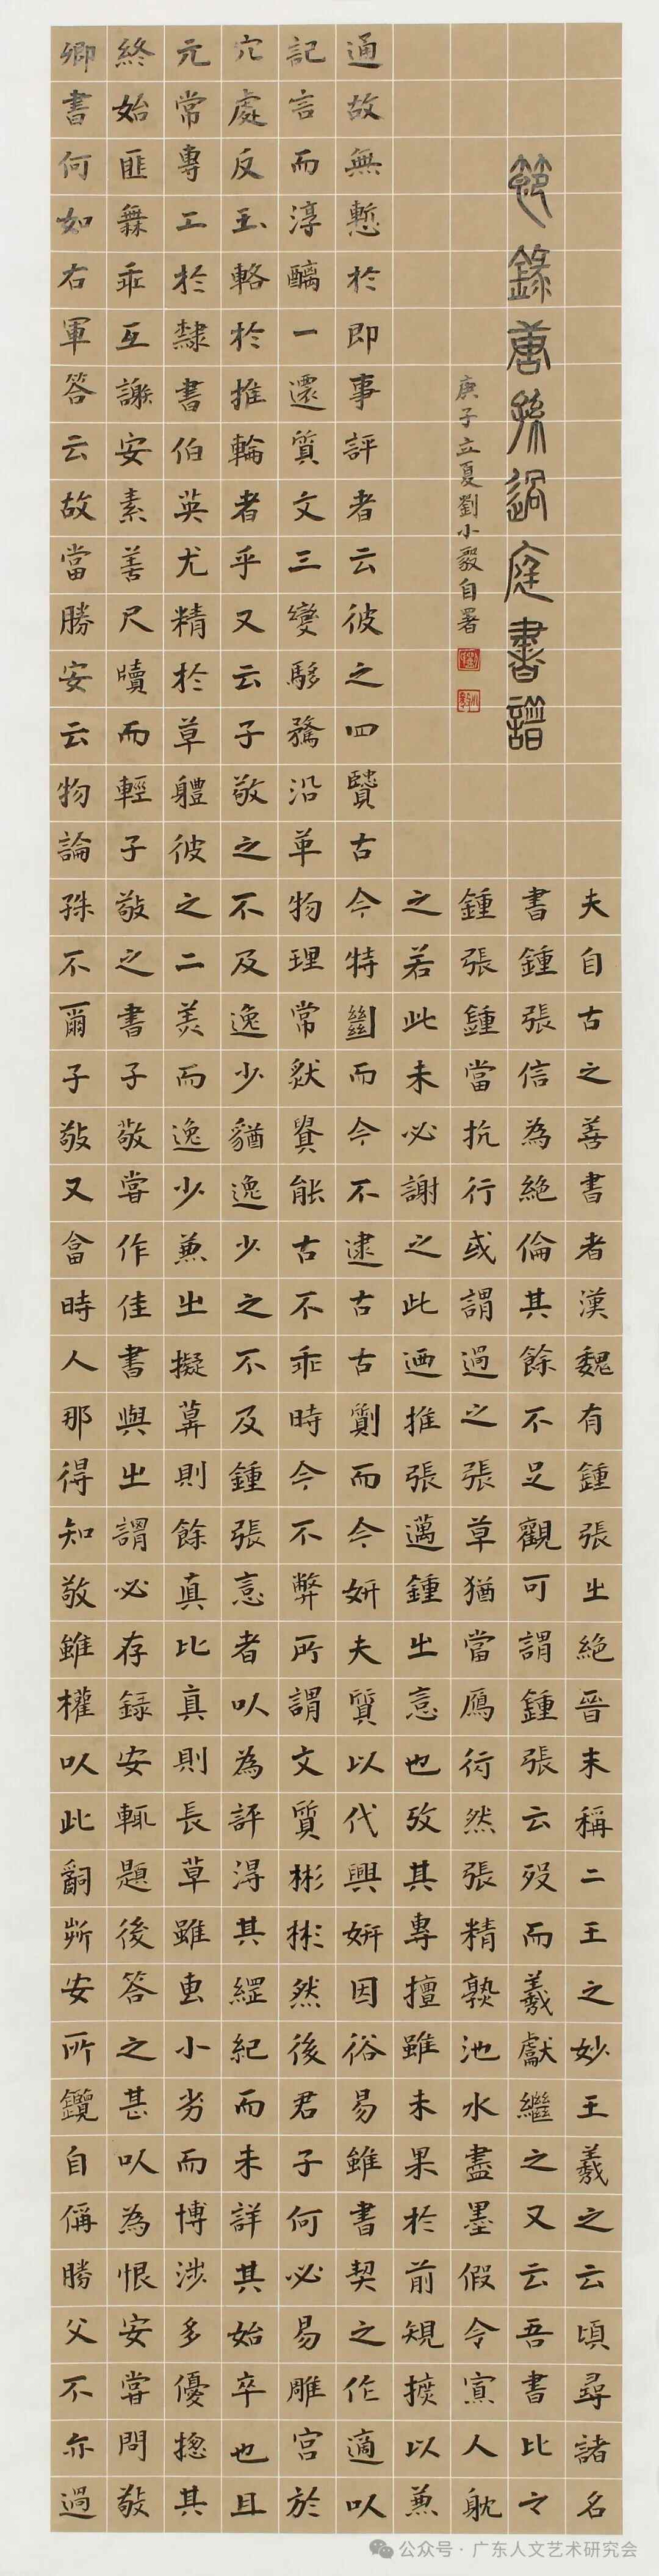 節錄唐孫過庭書譜
庚子立夏劉小毅自署
夫自古之善書者漢魏有鍾張之絕晉末稱二王之妙王羲之云頃尋諸名
書鍾張信為絕倫其餘不足觀可謂鍾張云歿而羲獻繼之又云吾書比之
鍾張鍾當抗行或謂過之張草猶當鴈行然張精熟池水盡墨假令寡人耽
之若此未必謝之此迺推張邁鍾之意也攷其專擅雖未果於前規摭以兼
通故無慙於即事評者云彼之四賢古今特絕而今不逮古古質而今妍夫質以代興妍因俗易雖書契之作適以
記言而淳醨一遷質文三變馳騖沿革物理常然貴能古不乖時今不弊所謂文質彬彬然後君子何必易雕宮於
穴處反玉輅於推輪者乎又云子敬之不及逸少猶逸少之不及鍾張意者以為評得其綱紀而未詳其始卒也且
元常專工於隸書伯英尤精於草體彼之二美而逸少兼之擬草則餘真比真則長草雖專小劣而博涉多優摠其
終始匪無乖互謝安素善尺牘而輕子敬之書子敬嘗作佳書與之謂必存錄安輒題後答之甚以為恨安嘗問敬
卿書何如右軍答云故當勝安云物論殊不爾子敬又答時人那得知敬雖權以此辭折安所鑒自稱勝父不亦過
公众号·广东人文艺术研究会